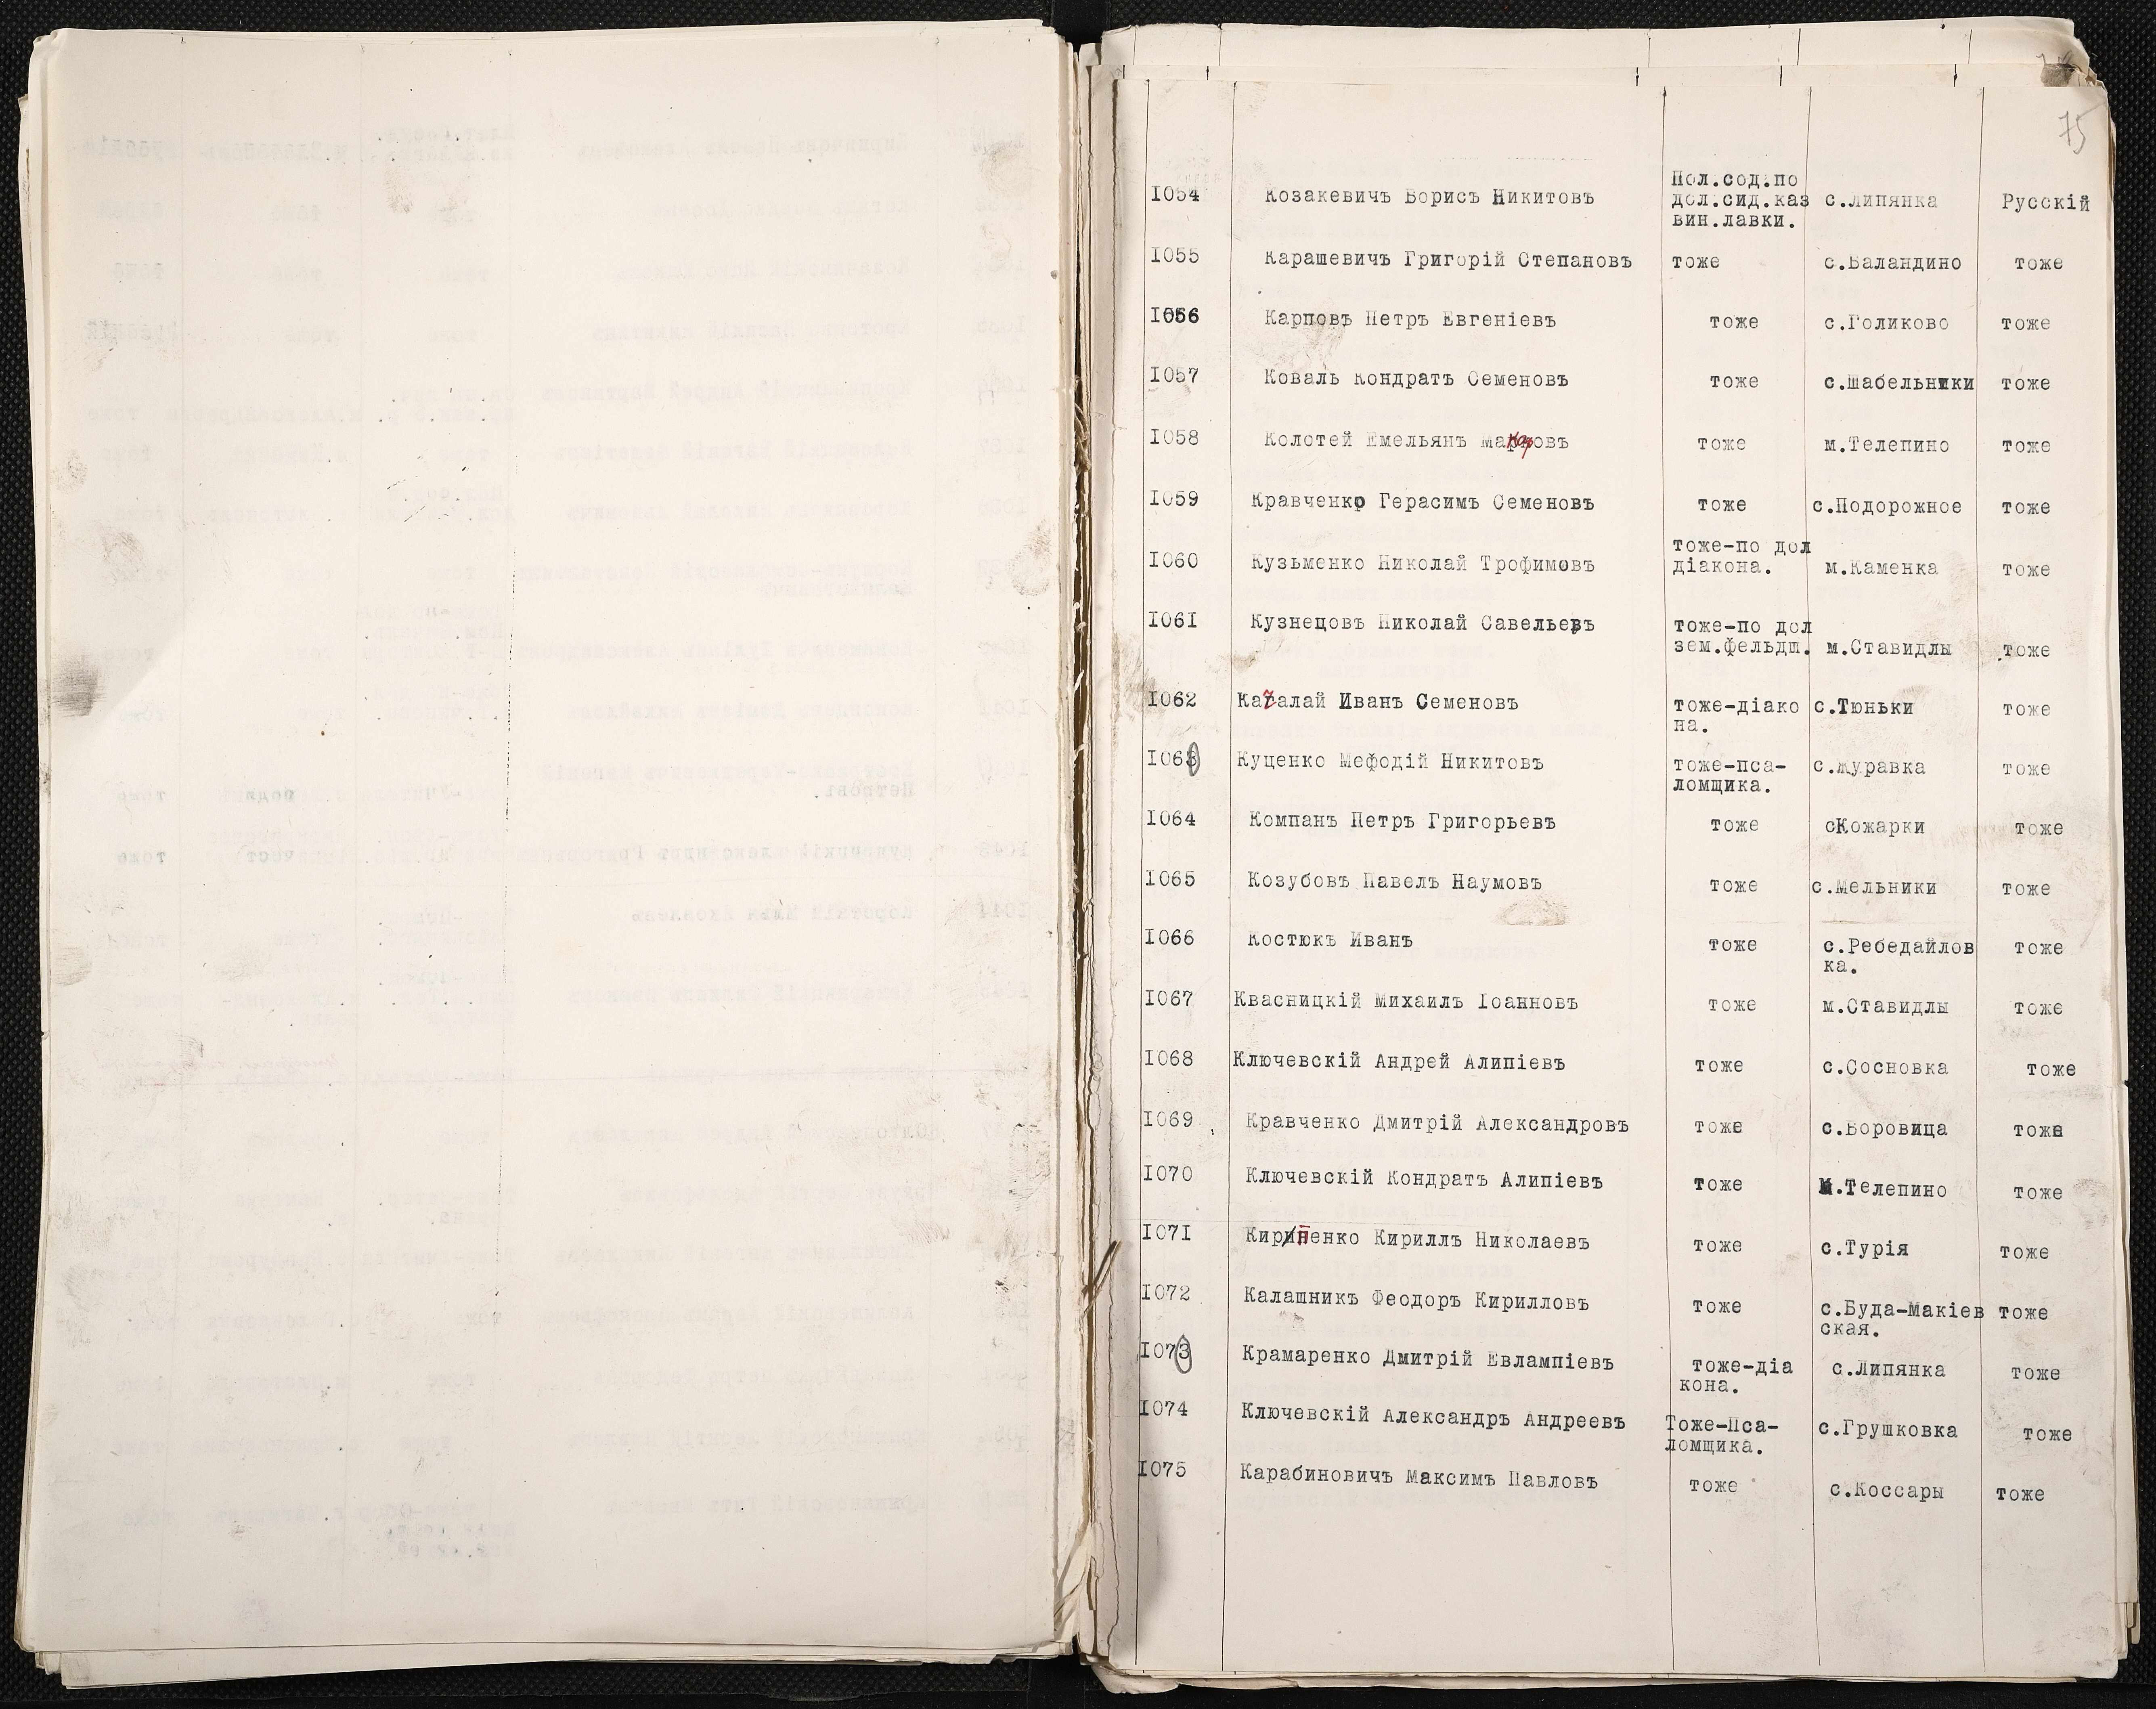 75
Пол.сод.по
I054 Козакевичъ Борисъ Никитовъ дол.сид.каз с.Липянка Русскій
вин.лавки.
I055 Карашевичъ Григорій Степановъ тоже с.Баландино тоже
I056 Карповъ Петръ Евгеніевъ тоже с.Голиково тоже
I057 Коваль Кондратъ Семеновъ тоже с.Шабельники тоже
I058 Колотей Емельянъ Марковъ тоже м.Телепино тоже
I059 Кравченко Герасимъ Семеновъ тоже с.Подорожное тоже
тоже-по дол
I060 Кузьменко Николай Трофимовъ діакона. м.Каменка тоже
I061 Кузнецовъ Николай Савельевъ тоже-по дол
зем.фельдш. м.Ставидлы тоже
I062 Качалай Иванъ Семеновъ тоже-діако с.Тюньки тоже
на.
I063 Куценко Мефодій Никитовъ тоже-пса- с.Журавка тоже
ломщика.
I064 Компанъ Петръ Григорьевъ тоже сКожарки тоже
I065 Козубовъ Павелъ Наумовъ тоже с.Мельники тоже
I066 Костюкъ Иванъ тоже с.Ребедайлов тоже
ка.
I067 Квасницкій Михаилъ Іоанновъ тоже м.Ставидлы тоже
I068 Ключевскій Андрей Алипіевъ тоже с.Сосновка тоже
I069 Кравченко Дмитрій Александровъ тоже с.Боровица тоже
I070 Ключевскій Кондратъ Алипіевъ тоже м.Телепино тоже
I071 Кирпенко Кириллъ Николаевъ тоже с.Турія тоже
I072 Калашникъ Феодоръ Кирилловъ тоже с.Буда-Макіев тоже
ская.
I073 Крамаренко Дмитрій Евлампіевъ тоже-діа с.Липянка тоже
кона.
I074 Ключевскій Александръ Андреевъ Тоже-Пса- с.Грушковка тоже
ломщика.
I075 Карабиновичъ Максимъ Павловъ тоже с.Коссары тоже